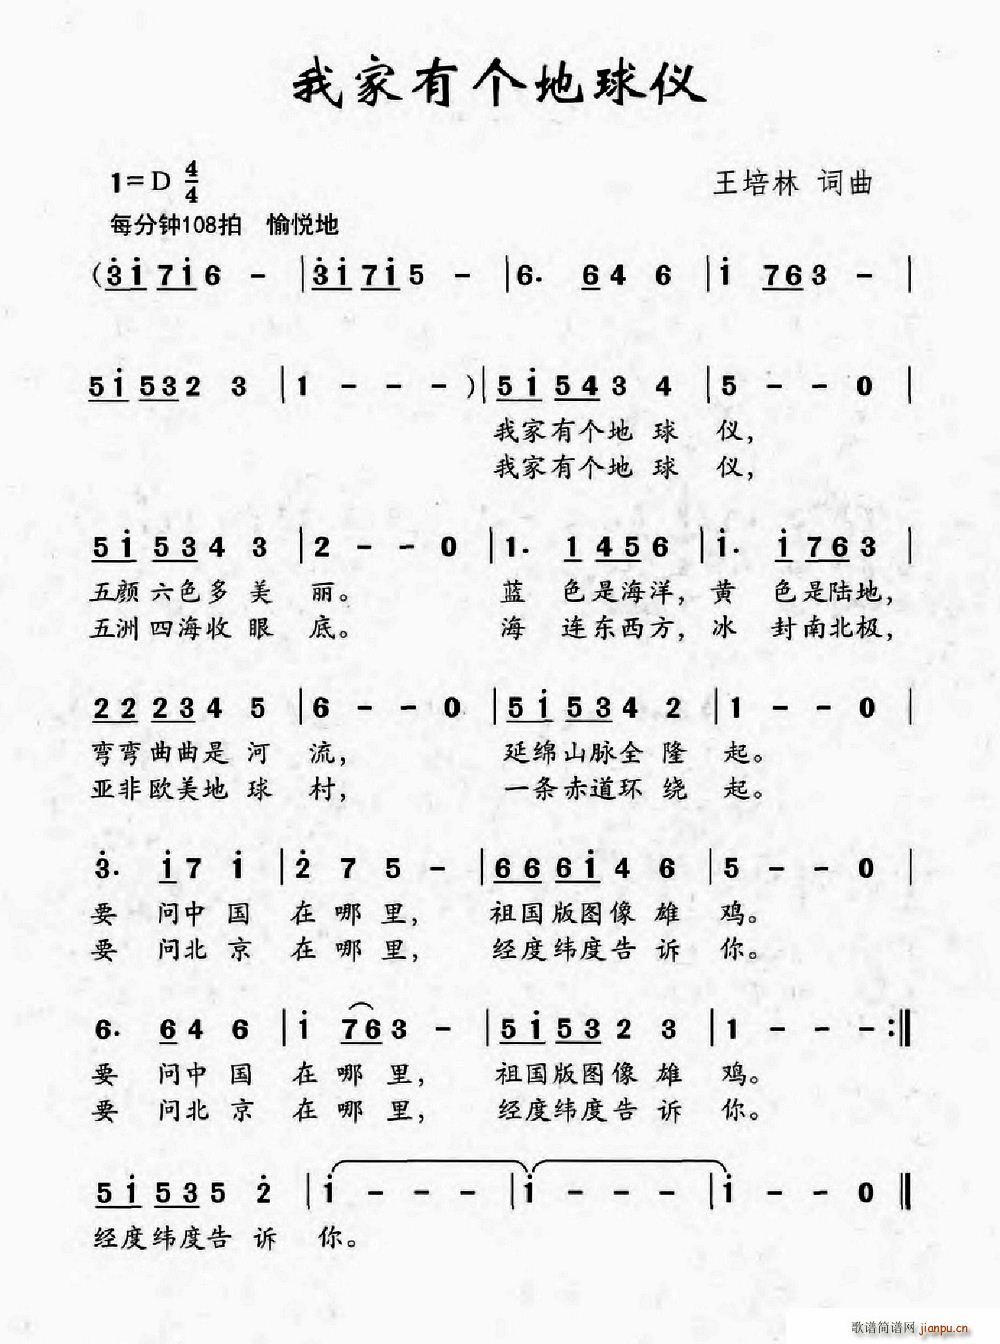 我家有个地球仪
1=D 4/4
王培林 词曲
每分钟108拍 愉悦地
(3̇1̇ 71̇ 6 - | 3̇1̇ 71̇ 5 - | 6. 6 4 6 | 1̇ 76 3 - |
51̇ 53 2 3 | 1 - - - ) | 51̇ 54 3 4 | 5 - - 0 |
我家有个地 球 仪,
我家有个地 球 仪,
51̇ 53 4 3 | 2 - - 0 | 1. 1 45 6 | 1̇. 1̇ 76 3 |
五颜六色多 美 丽。 蓝 色是海洋, 黄 色是陆地,
五洲四海收 眼 底。 海 连东西方, 冰 封南北极,
22 23 4 5 | 6 - - 0 | 51̇ 53 4 2 | 1 - - 0 |
弯弯曲曲是 河 流, 延绵山脉全 隆 起。
亚非欧美地 球 村, 一条赤道环 绕 起。
3̇. 1̇ 7 1̇ | 2̇ 7 5 - | 66 61̇ 4 6 | 5 - - 0 |
要 问中 国 在 哪 里, 祖国版图像 雄 鸡。
要 问北 京 在 哪 里, 经度纬度告 诉 你。
6. 6 4 6 | 1̇ 76 3 - | 51̇ 53 2 3 | 1 - - - :‖
要 问中 国 在 哪 里, 祖国版图像 雄 鸡。
要 问北 京 在 哪 里, 经度纬度告 诉 你。
51̇ 53 5 2̇ | 1̇ - - - | 1̇ - - - | 1̇ - - 0 ‖
经度纬度告 诉 你。
歌谱简谱网
jianpu.cn